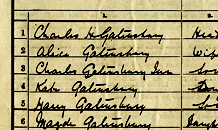 1 Charles H Gatensbury Hea
2 Alice Gatensbury Wif
3 Charles Gatensbury Jun So
4 Kate Gatensbury
5 Harry Gatensbury So
6 Magde Gatensbury Daug